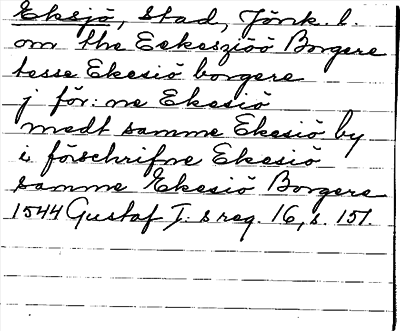 Eksjö, stad, Jönk. l.
om the Eekeszióó Borgere
tesse Ekesió borgere
j för:ne Ekesió
medt samme Ekesió by
i förschrifne Ekesió
samme Ekesió Borgere
1544 Gustaf I:s reg. 16, s. 151.